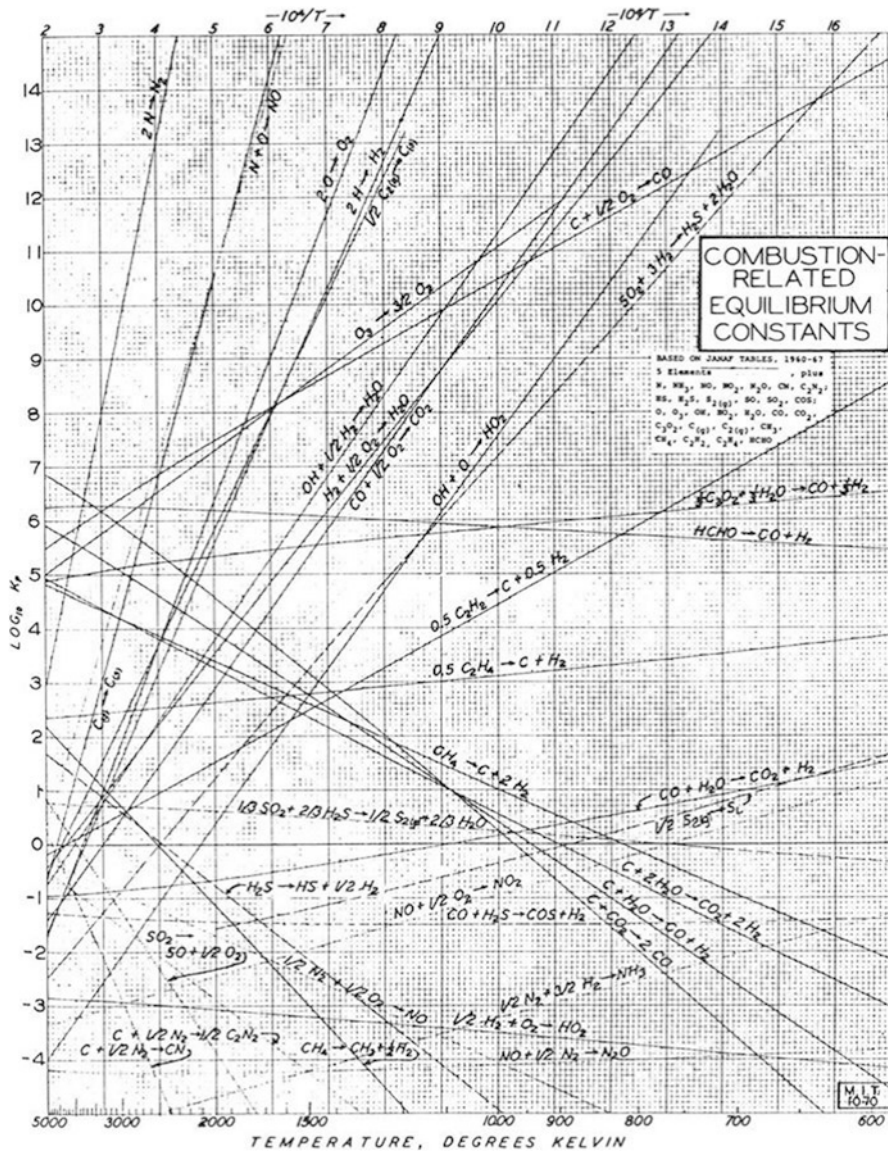 —10⁴/T→ —10⁴/T→
2 3 4 5 6 7 8 9 10 11 12 13 14 15 16
14
13
12
11
10
9
8
7
6
5
4
3
2
1
0
-1
-2
-3
-4
LOG₁₀ Kₚ
2N→N₂
N+O→NO
2O→O₂
2H→H₂
1/2 C₂(g)→C(s)
C + 1/2 O₂→CO
SO₂+3H₂→H₂S+2H₂O
COMBUSTION-
RELATED
EQUILIBRIUM
CONSTANTS
BASED ON JANAF TABLES, 1960-67
5 Elements , plus
N, NH₃, NO, NO₂, N₂O, CN, C₂N₂;
HS, H₂S, S₂(g), SO, SO₂, COS;
O, O₃, OH, HO₂, H₂O, CO, CO₂,
C₃O₂, C(g), C₂(g), CH₃,
CH₄, C₂H₂, C₂H₄, HCHO
O₃→3/2 O₂
OH+1/2 H₂→H₂O
H₂+1/2 O₂→H₂O
CO+1/2 O₂→CO₂
OH+O→HO₂
1/3C₃O₂+1/3H₂O→CO+1/3H₂
HCHO→CO+H₂
0.5 C₂H₂→C+0.5 H₂
0.5 C₂H₄→C+H₂
C(g)→C(s)
CH₄→C+2H₂
CO+H₂O→CO₂+H₂
1/2 S₂(g)→S
1/3 SO₂+2/3H₂S→1/2 S₂(g)+2/3H₂O
H₂S→HS+1/2H₂
NO+1/2 O₂→NO₂
CO+H₂S→COS+H₂
C+2H₂O→CO₂+2H₂
C+H₂O→CO+H₂
C+CO₂→2CO
SO₂→
SO+1/2O₂
1/2 N₂+1/2O₂→NO
1/2N₂+3/2H₂→NH₃
1/2 H₂+O₂→HO₂
C+1/2N₂→1/2 C₂N₂
C+1/2N₂→CN
CH₄→CH₃+1/2H₂
NO+1/2 N₂→N₂O
M.I.T.
10-70
5000 3000 2000 1500 1000 900 800 700 600
TEMPERATURE, DEGREES KELVIN